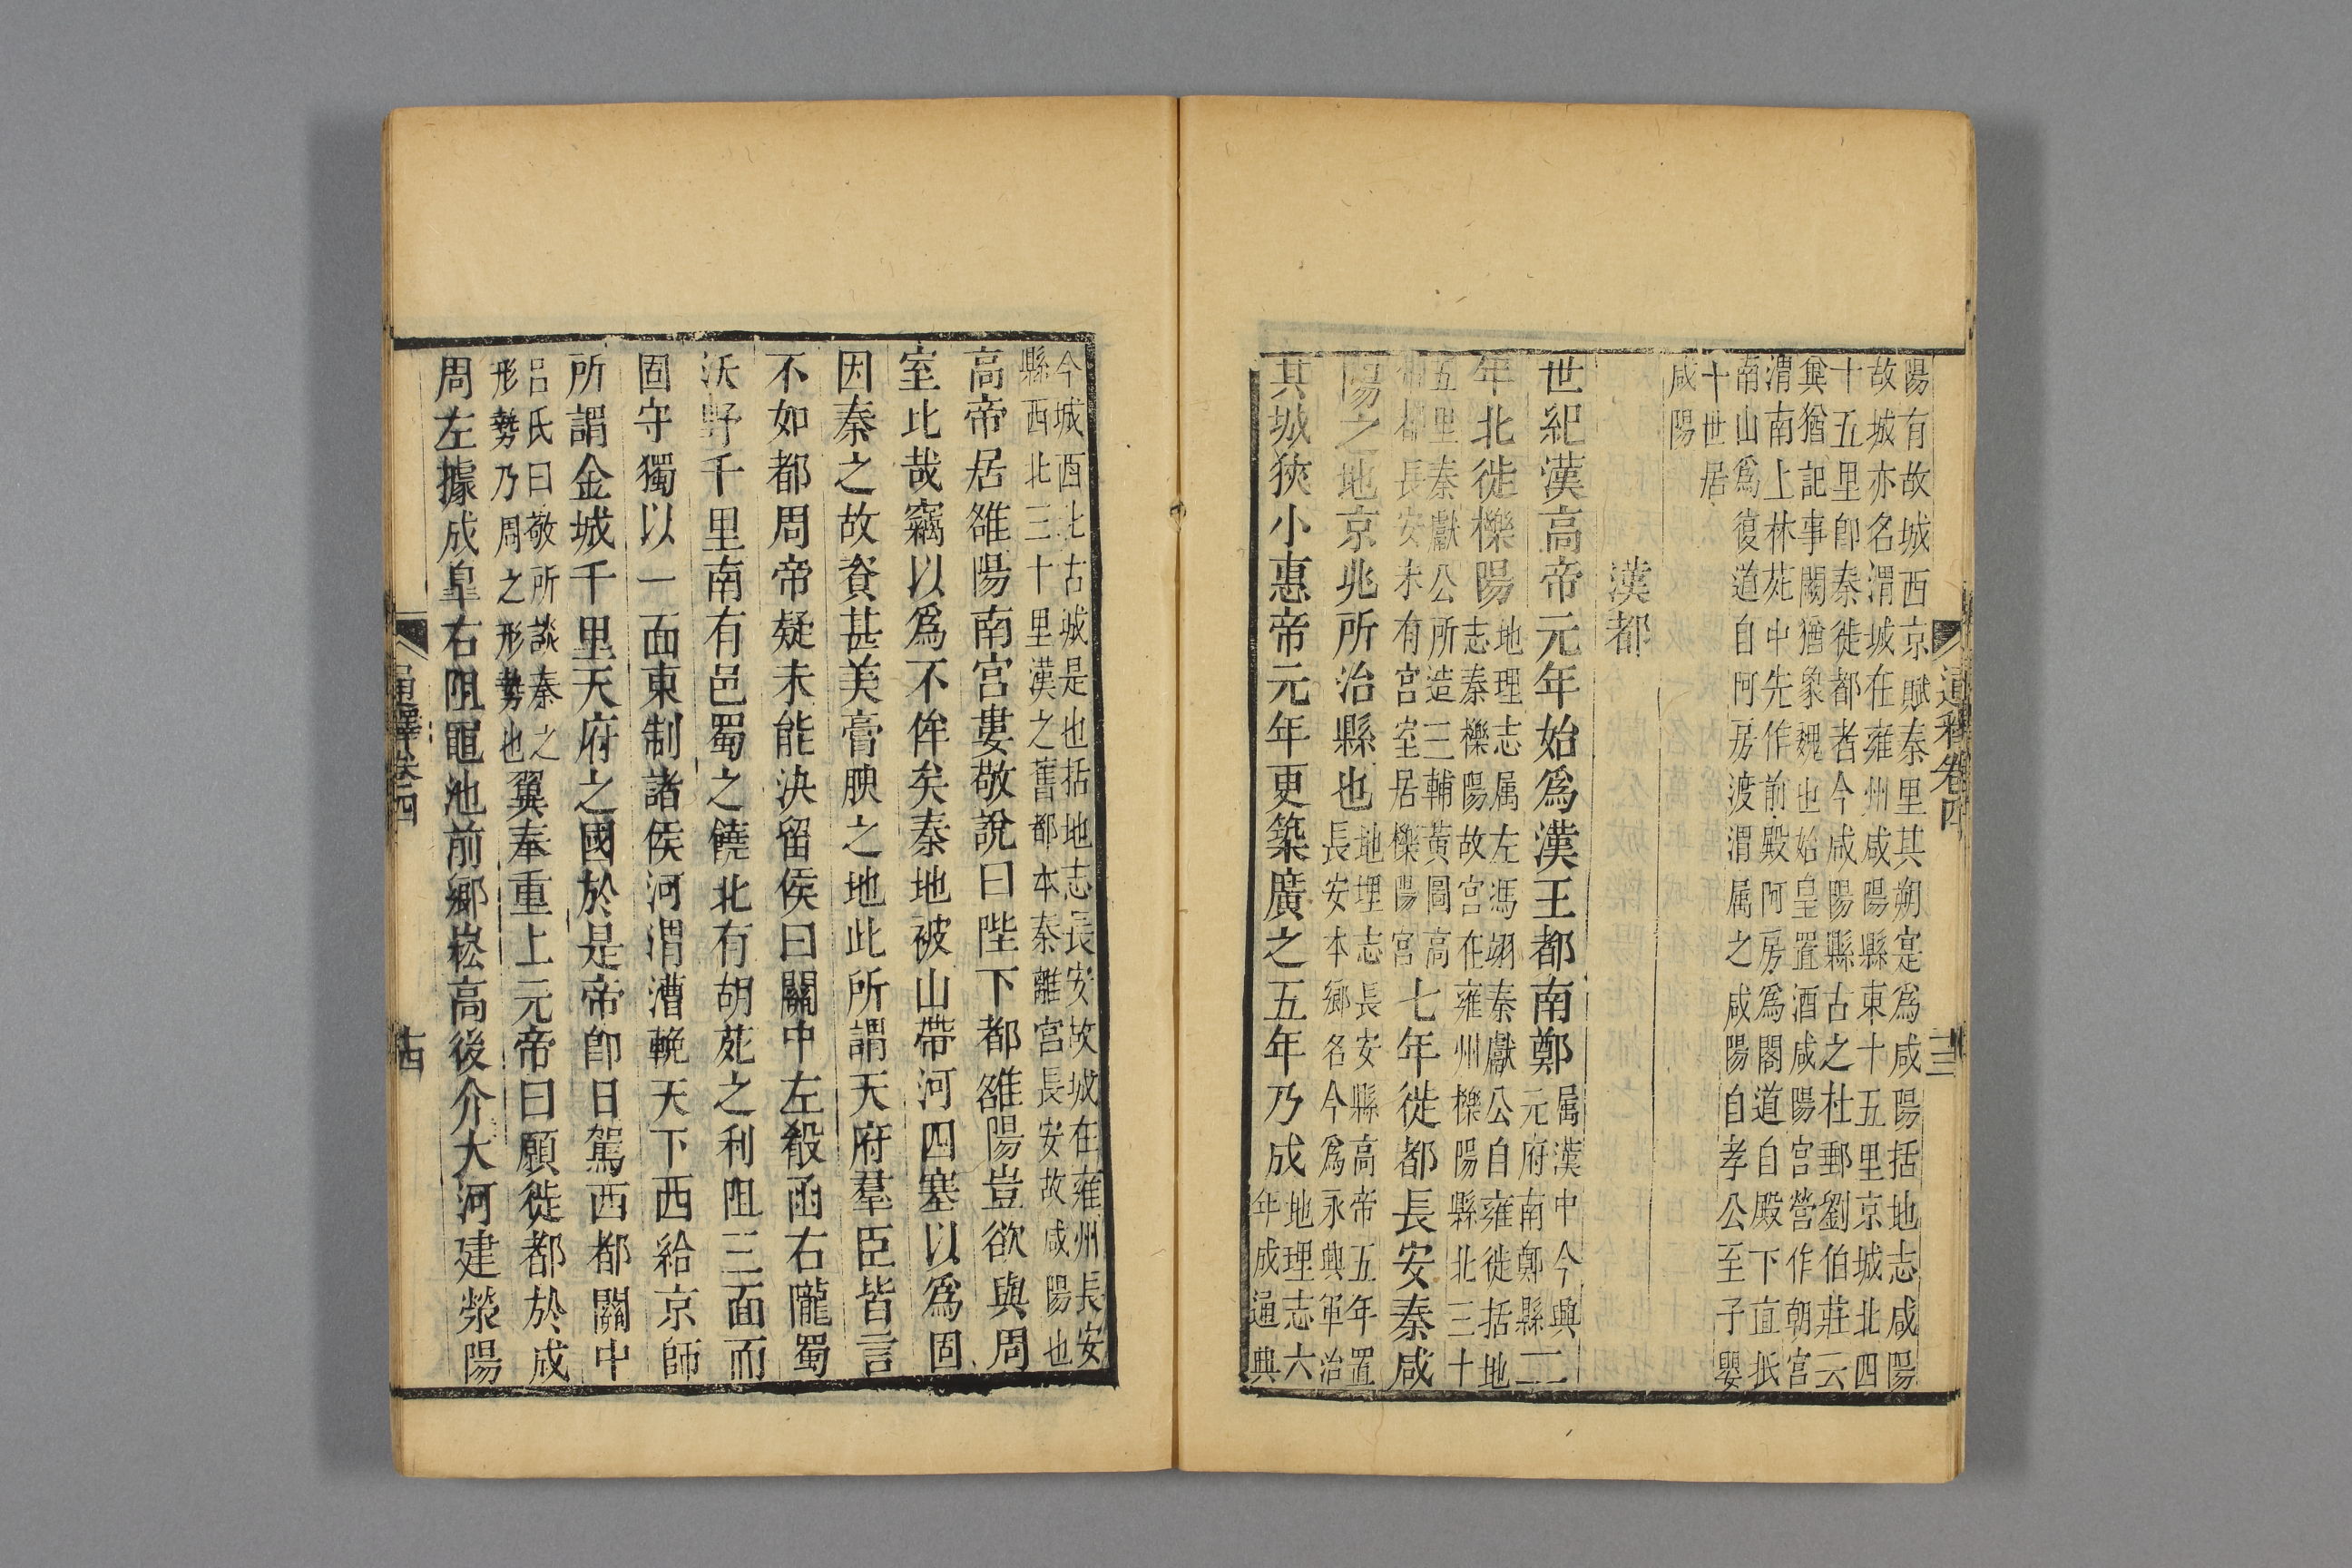 通釋卷四
十三
陽有故城西京賦秦里其朔寔爲咸陽括地志咸陽
故城亦名渭城在雍州咸陽縣東十五里京城北四
十五里卽秦徙都者今咸陽縣古之杜郵劉伯莊云
冀猶記事闕猶象魏也始皇置酒咸陽宮營作朝宮
渭南上林苑中先作前殿阿房爲閣道自殿下直抵
南山爲復道自阿房渡渭属之咸陽自孝公至子嬰
十世居
咸陽
漢都
世紀漢高帝元年始爲漢王都南鄭属漢中今興
元府南鄭縣二
年北徙櫟陽地理志属左馮翊秦獻公自雍徙括地
志秦櫟陽故宮在雍州櫟陽縣北三十
五里秦獻公所造三輔黃圖高
帝都長安未有宮室居櫟陽宮七年徙都長安秦咸
陽之地京兆所治縣也地理志長安縣高帝五年置
長安本鄉名今爲永興軍治
其城狹小惠帝元年更築廣之五年乃成地理志六
年成通典
今城西北古城是也括地志長安故城在雍州長安
縣西北三十里漢之舊都本秦離宮長安故咸陽也
高帝居雒陽南宮婁敬說曰陛下都雒陽豈欲與周
室比哉竊以爲不侔矣秦地被山帶河四塞以爲固
因秦之故資甚美膏腴之地此所謂天府羣臣皆言
不如都周帝疑未能決留侯曰關中左殽函右隴蜀
沃野千里南有邑蜀之饒北有胡苑之利阻三面而
固守獨以一面東制諸侯河渭漕輓天下西給京師
所謂金城千里天府之國於是帝卽日駕西都關中
呂氏曰敬所談秦之
形勢乃周之形勢也翼奉重上元帝曰願徙都於成
周左據成皐右阻黽池前鄉崧高後介大河建滎陽
通釋卷四
十四